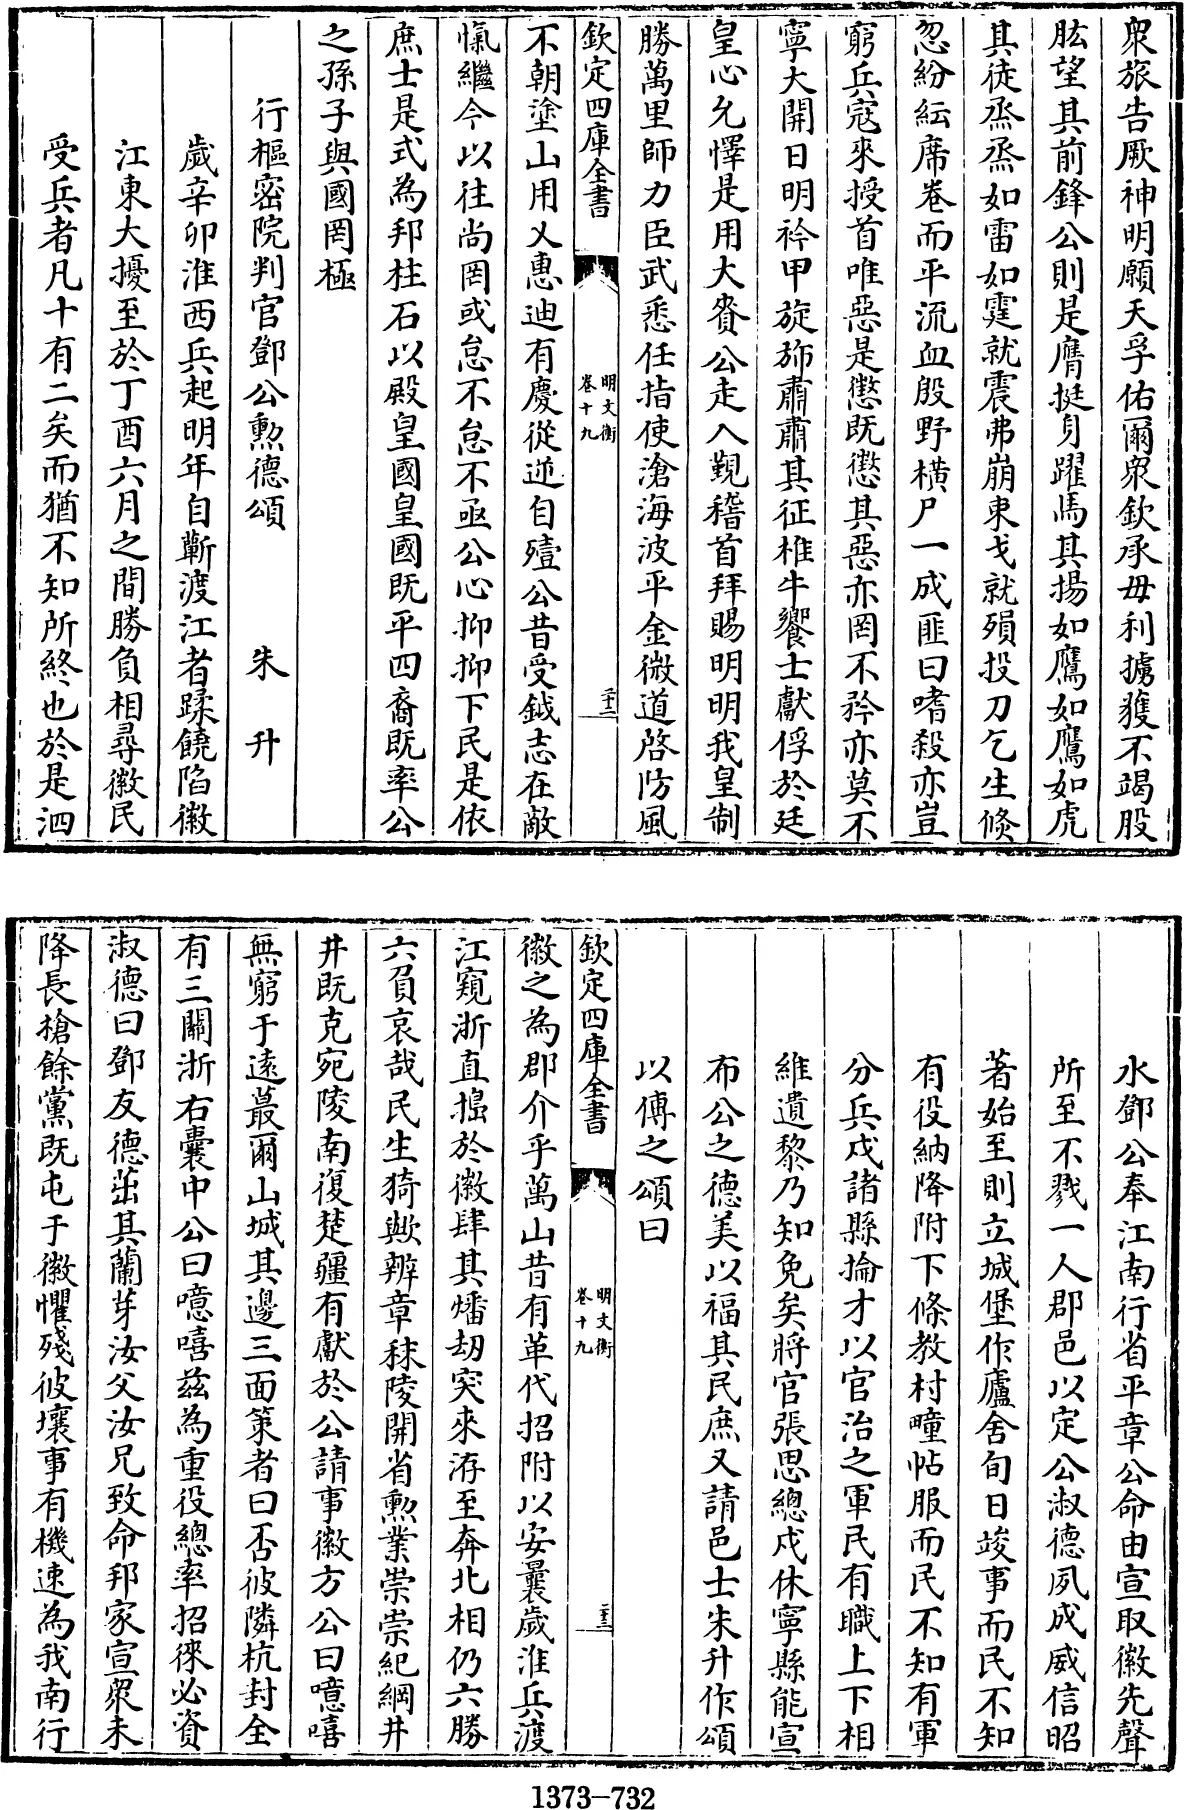 衆旅告厥神明願天孚佑爾衆欽承毋利擄獲不竭股
肱望其前鋒公則是膺挺身躍馬其揚如鷹如鷹如虎
其徒烝烝如雷如霆就震弗崩束戈就殞投刀乞生倐
忽紛紜席卷而平流血殷野横尸一成匪曰嗜殺亦豈
窮兵寇來授首唯惡是懲既懲其惡亦罔不矜亦莫不
寧大開日明衿甲旋斾肅肅其征椎牛饗士獻俘於廷
皇心允懌是用大賚公走入覲稽首拜賜明明我皇制
勝萬里師力臣武悉任指使滄海波平金微道啓防風
欽定四庫全書
明文衡
卷十九
二十二
不朝塗山用乂惠迪有慶從逆自殪公昔受鉞志在敵
愾繼今以往尚罔或怠不怠不亟公心抑抑下民是依
庶士是式為邦柱石以殿皇國皇國既平四裔既率公
之孫子與國罔極
行樞密院判官鄧公勲德頌
朱升
歲辛卯淮西兵起明年自蘄渡江者蹂饒陷徽
江東大擾至於丁酉六月之間勝負相尋徽民
受兵者凡十有二矣而猶不知所終也於是泗
水鄧公奉江南行省平章公命由宣取徽先聲
所至不戮一人郡邑以定公淑德夙成威信昭
著始至則立城堡作廬舍旬日竣事而民不知
有役納降附下條教村疃帖服而民不知有軍
分兵戍諸縣掄才以官治之軍民有職上下相
維遺黎乃知免矣將官張思總戍休寧縣能宣
布公之德美以福其民庶又請邑士朱升作頌
以傳之頌曰
欽定四庫全書
明文衡
卷十九
二十三
徽之為郡介乎萬山昔有革代招附以安曩歲淮兵渡
江窺浙直搗於徽肆其燔刼突來洊至奔北相仍六勝
六負哀哉民生猗歟辨章秣陵開省勲業崇崇紀綱井
井既克宛陵南復楚疆有獻於公請事徽方公曰噫嘻
無窮于遠蕞爾山城其邊三面策者曰否彼隣杭封全
有三關浙右囊中公曰噫嘻兹為重役總率招徠必資
淑德曰鄧友德茁其蘭芽汝父汝兄致命邦家宣衆未
降長槍餘黨既屯于徽懼殘彼壤事有機速為我南行
1373-732